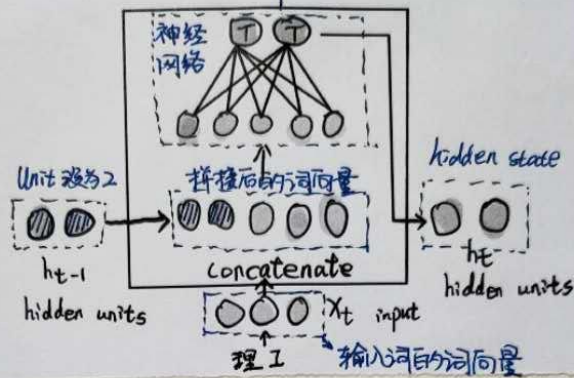 神经
网络
T T
Unit 设为2
拼接后的词向量
hidden state
ht-1
hidden units
concatenate
ht
hidden units
Xt input
理工
输入词的词向量